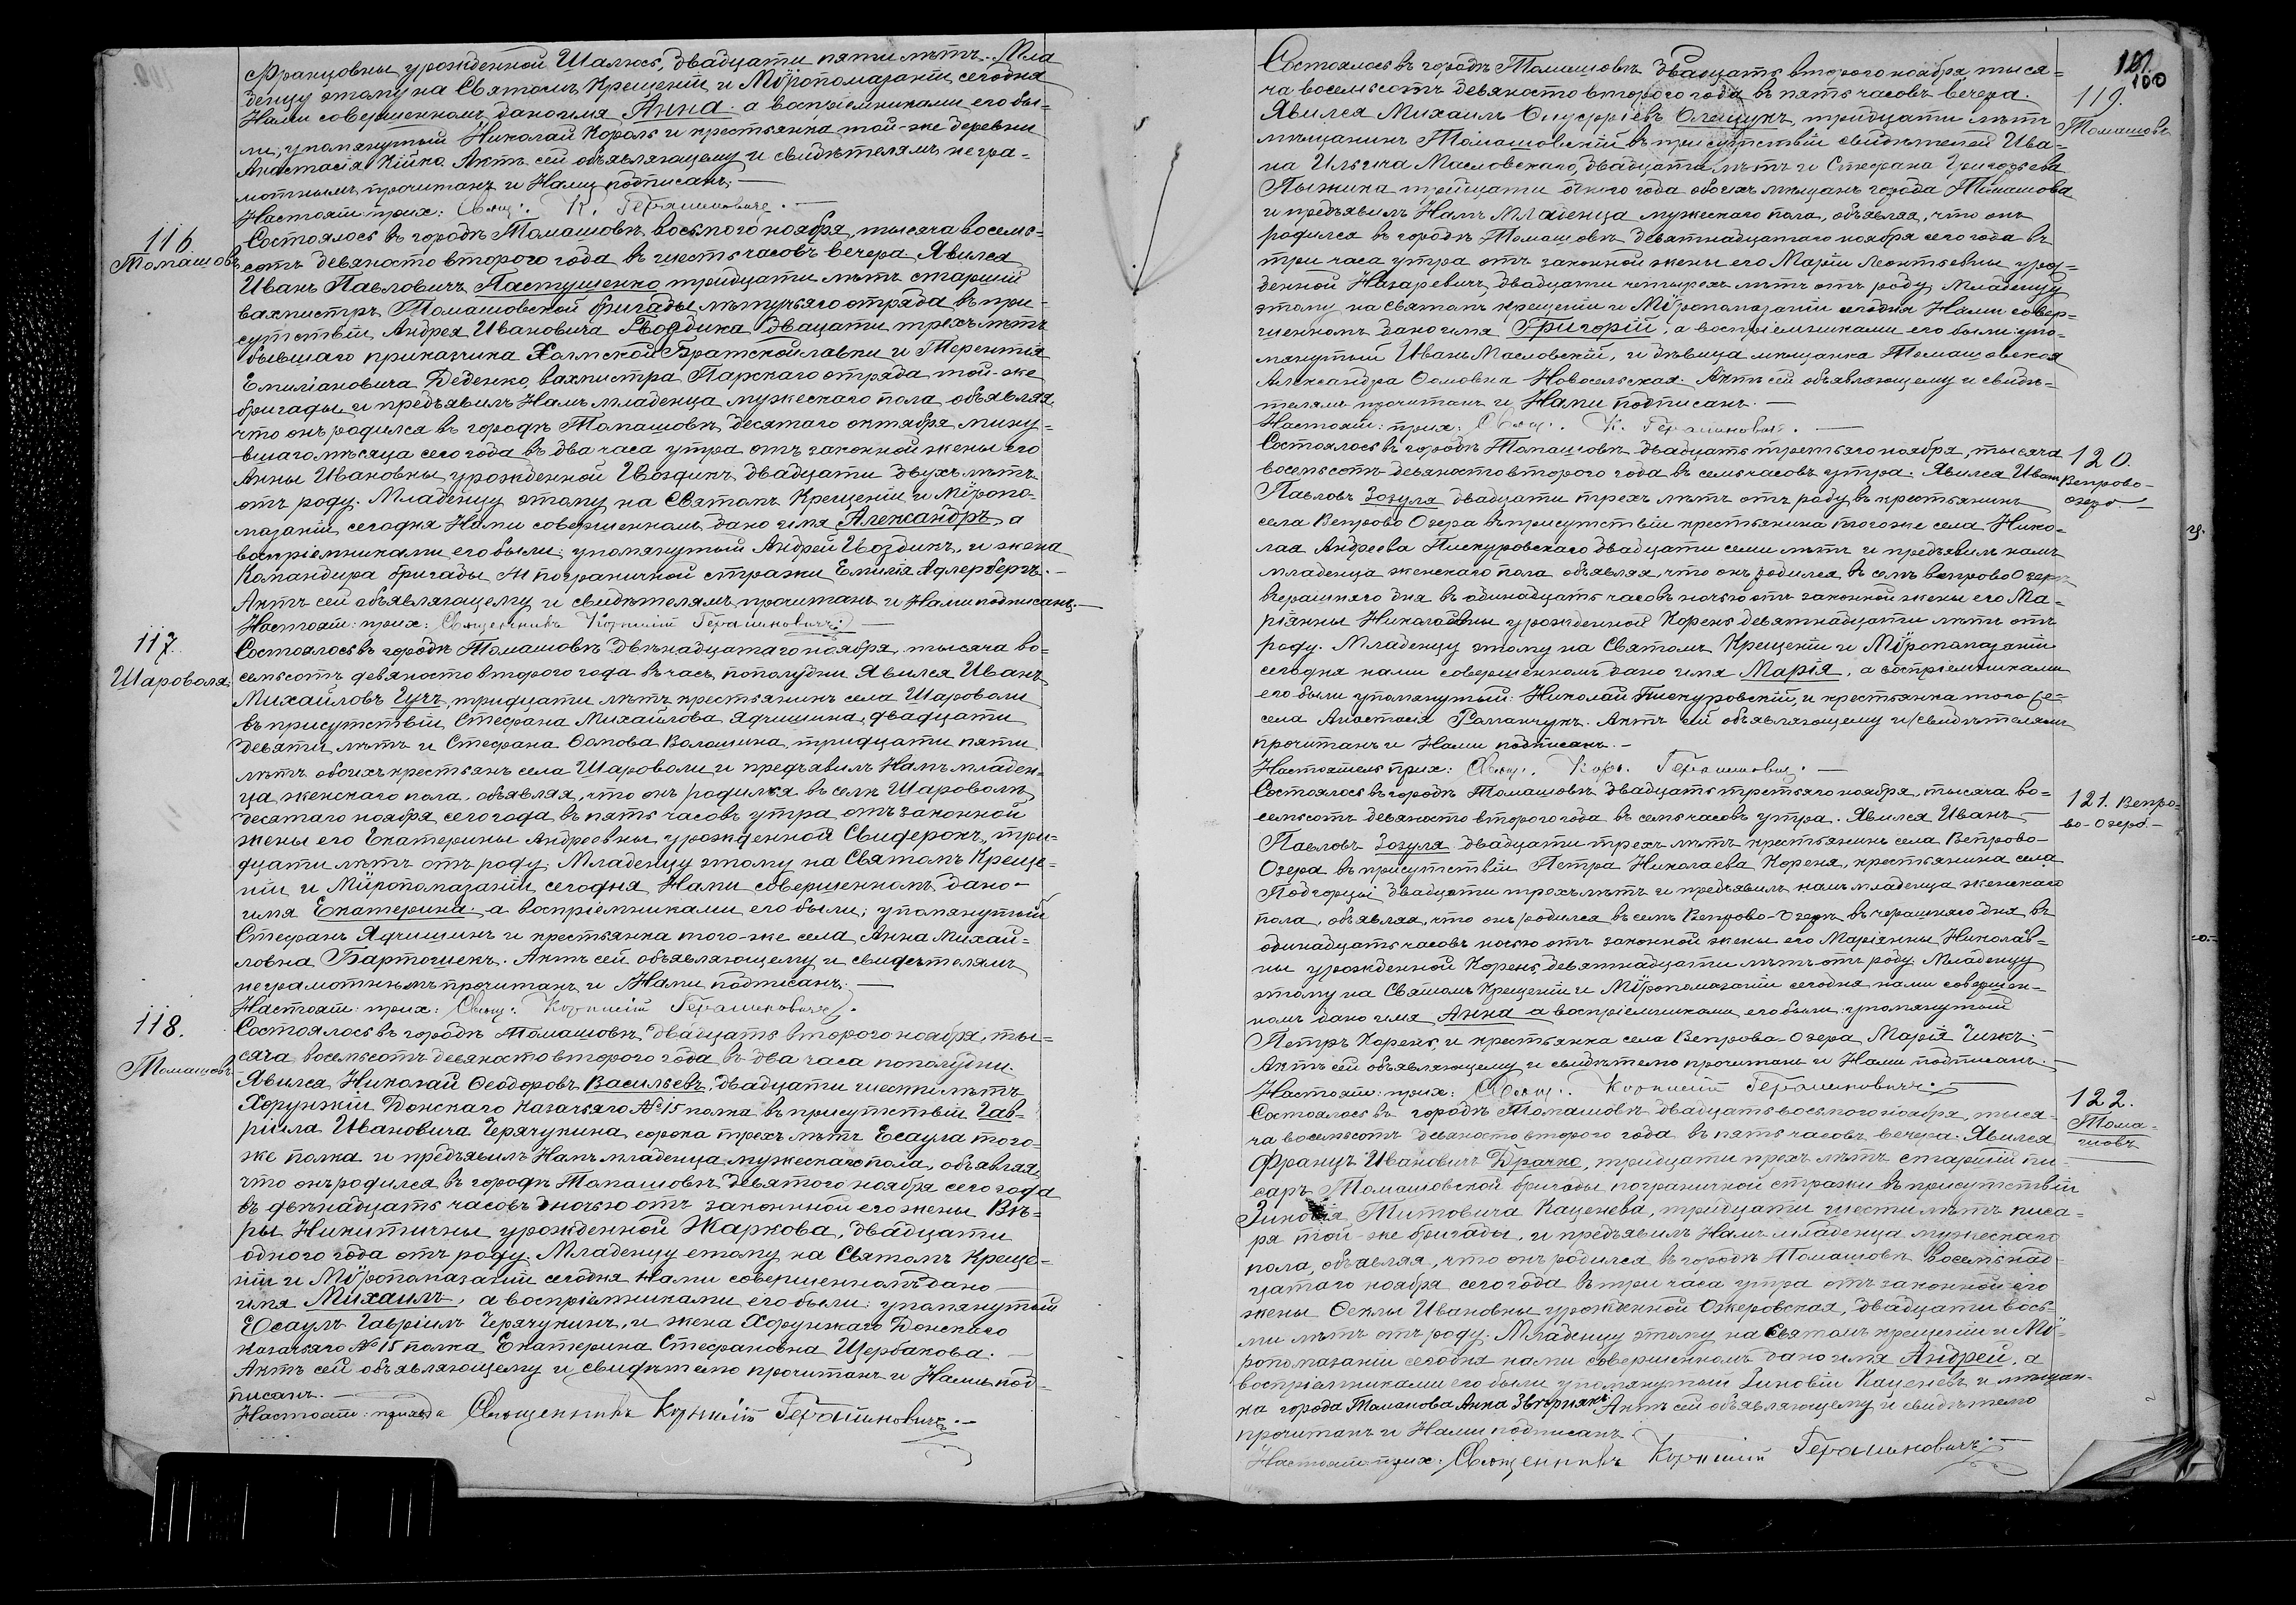 Францовны урожденной Шалюсъ, двадцати пяти лѣтъ. Мла
денцу этому на Святомъ Крещеніи и Мѵропомазаніи, сегодня
Нами совершенномъ дано имя Анна. а воспріемниками его бы-
ли, упомянутый Николай Король и крестьянка той-же деревни
Анастасія Кійко. Актъ сей объявляющему и свидѣтелямъ негра-
мотнымъ, прочитанъ и Нами подписанъ.
Настоят: прих: Свящ: К. Герасимовичъ.
116.
Томашовъ
Состоялось въ городѣ Томашовѣ, восьмого ноября, тысяча восемь-
сотъ девяносто второго года въ шесть часовъ вечера. Явился
Иванъ Павловичъ Пастушенко тридцати лѣтъ старшій
вахмистръ Томашовской бригады летучаго отряда въ при-
сутствіи, Андрея Ивановича Гвоздика двадцати трехъ лѣтъ
бывшаго приказчика Холмской Братской лавки и Терентія
Емиліановича Деденко, вахмистра Парскаго отряда той-же
бригады и предъявилъ Намъ младенца мужескаго пола объявляя,
что онъ родился въ городѣ Томашовѣ, десятаго октября, мину-
вшаго мѣсяца сего года въ два часа утра отъ законной жены его
Анны Ивановны урожденной Гвоздикъ, двадцати двухъ лѣтъ
отъ роду. Младенцу этому на Святомъ Крещеніи и Мѵропо-
мазаніи сегодня Нами совершенномъ, дано имя Александръ, а
воспріемниками его были; упомянутый Андрей Гвоздикъ, и жена
Командира бригады пограничной стражи Емилія Адлербергъ.
Актъ сей объявляющему и свидѣтелямъ прочитанъ и Нами подписанъ.
Настоят: прих: Священникъ Корнилій Герасимовичъ.
117.
Шароволя.
Состоялось въ городѣ Томашовѣ двѣнадцатаго ноября, тысяча во-
семьсотъ девяносто второго года въ часъ пополудни. Явился Иванъ
Михайловъ Гучъ, тридцати лѣтъ крестьянинъ села Шароволи
въ присутствіи Стефана Михайлова Ядчишина, двадцати
девяти лѣтъ и Стефана Ѳомова Волошина тридцати пяти
лѣтъ обоихъ крестьянъ села Шароволи и предъявилъ Намъ младен-
ца женскаго пола, объявляя, что онъ родился въ селѣ Шароволѣ
десятаго ноября сего года въ пять часовъ утра отъ законной
жены его Екатерины Андреевны урожденной Свидеронъ, три-
дцати лѣтъ отъ роду. Младенцу этому на Святомъ Креще-
ніи и Мѵропомазаніи сегодня Нами совершенномъ, дано-
имя Екатерина. а воспріемниками его были; упомянутый
Стефанъ Ядчишинъ и крестьянка того-же села Анна Михай-
ловна Бартошекъ. Актъ сей объявляющему и свидѣтелямъ
неграмотнымъ прочитанъ и Нами подписанъ.
Настоят: прих: Свящ: Корнилій Герасимовичъ.
118.
Томашовъ
Состоялось въ городѣ Томашовѣ, двадцать второго ноября, ты-
сяча восемьсотъ девяносто второго года въ два часа пополудни.
Явился Николай Ѳеодоровъ Васильевъ, двадцати шести лѣтъ
Хорунжій Донскаго Казачьяго № 15 полка въ присутствіи Гав-
ріила Ивановича Черячукина, сорока трехъ лѣтъ Есаула того-
же полка и предъявилъ Намъ младенца мужескаго пола, объявляя,
что онъ родился въ городѣ Томашовѣ девятого ноября сего года
въ двѣнадцать часовъ ночью отъ законной его жены Вѣ-
ры Никитичны урожденной Жаркова, двадцати
одного года отъ роду. Младенцу етому на Святомъ Креще-
ніи и Мѵропомазаніи сегодня Нами совершенномъ дано
имя Михаилъ, а воспріемниками его были: упомянутый
Есаулъ Гавріилъ Черячукинъ, и жена Хорунжаго Донскаго
Казачьяго № 15 полка Екатерина Стефановна Щербакова.
Актъ сей объявляющему и свидѣтелю прочитанъ и Нами под-
писанъ.
Настоят: прихода Священникъ Корнилій Герасимовичъ.
101.
100
119.
Томашовъ
Состоялось въ городѣ Томашовѣ двадцать второго ноября, тыся-
ча восемьсотъ девяносто второго года въ пять часовъ вечера.
Явился Михаилъ Онуфріевъ Олещукъ, тридцати лѣтъ
мѣщанинъ Томашовскій въ присутствіи свидѣтелей Ива-
на Ильича Масловскаго, двадцати лѣтъ и Стефана Григорьева
Пыжика тридцати одного года обоихъ мѣщанъ города Томашова
и предъявилъ Намъ Младенца мужескаго пола, объявляя, что онъ
родился въ городѣ Томашовѣ девятнадцатаго ноября сего года въ
три часа утра отъ законной жены его Маріи Леонтьевны урож-
денной Назаревичъ, двадцати четырехъ лѣтъ отъ роду. Младенцу
этому на Святомъ Крещеніи и Мѵропомазаніи сегодня Нами совер-
шенномъ дано имя Григорій, а воспріемниками его были: упо-
мянутый Иванъ Масловскій, и дѣвица мѣщанка Томашовская
Александра Ѳомовна Новосельская. Актъ сей объявляющему и свидѣ-
телямъ прочитанъ и Нами подписанъ.
Настоят: прих: Свящ: К. Герасимовичъ.
120.
Вепрово-
озеро.
Состоялось въ городѣ Томашовѣ двадцать третьяго ноября, тысяча
восемьсотъ девяносто второго года въ семь часовъ утра. Явился Иванъ
Павловъ Зозуля двадцати трехъ лѣтъ отъ роду, крестьянинъ
села Вепрово Озера въ присутствіи крестьянина того же села Нико-
лая Андреева Пискуровскаго двадцати семи лѣтъ и предъявилъ намъ
младенца женскаго пола объявляя, что онъ родился въ селѣ Вепрово Озерѣ
вчерашняго дня въ одинадцать часовъ ночью отъ законной жены его Ма-
ріянны Николаевны урожденной Корень девятнадцати лѣтъ отъ
роду. Младенцу этому на Святомъ Крещеніи и Мѵропомазаніи
сегодня нами совершенномъ дано имя Марія, а воспріемниками
его были упомянутый: Николай Пискуровскій, и крестьянка того же-
села Анастасія Романчукъ. Актъ сей объявляющему и свидѣтелямъ
прочитанъ и Нами подписанъ.
Настоятель прих: Свящ: Корн. Герасимовичъ.
121. Вепро-
во-Озеро.
Состоялось въ городѣ Томашовѣ двадцать третьяго ноября, тысяча во-
семьсотъ девяносто второго года въ семь часовъ утра. Явился Иванъ
Павловъ Зозуля двадцати трехъ лѣтъ крестьянинъ села Вепрово-
Озера въ присутствіи Петра Николаева Кореня, крестьянина села
Подгорцы двадцати трехъ лѣтъ и предъявилъ намъ младенца женскаго
пола, объявляя, что онъ родился въ селѣ Вепрово-Озерѣ вчерашняго дня въ
одинадцать часовъ ночью отъ законной жены его Маріянны Николаев-
ны урожденной Корень, девятнадцати лѣтъ отъ роду. Младенцу
этому на Святомъ Крещеніи и Мѵропомазаніи сегодня нами совершен-
номъ дано имя Анна а воспріемниками его были: упомянутый
Петръ Корень, и крестьянка села Вепрова-Озера Марія Чижъ.
Актъ сей объявляющему и свидѣтелю прочитанъ и Нами подписанъ.
Настоят: прих: Свящ: Корнилій Герасимовичъ.
122.
Тома-
шовъ
Состоялось въ городѣ Томашовѣ двадцать восьмого ноября, тыся-
ча восемьсотъ девяносто второго года въ пять часовъ вечера. Явился
Францъ Ивановичъ Драчко, тридцати трехъ лѣтъ старшій пи-
саръ Томашовской бригады пограничной стражи въ присутствіи
Зиновія Титовича Каценева, тридцати шести лѣтъ писа-
ря той-же бригады, и предъявилъ Намъ младенца мужескаго
пола, объявляя, что онъ родился въ городѣ Томашовѣ восемьнад-
цатаго ноября сего года въ три часа утра отъ законной его
жены Ѳеклы Ивановны урожденной Ожеровская, двадцати вось-
ми лѣтъ отъ роду. Младенцу этому на Святомъ крещеніи и Мѵ-
ропомазаніи сегодня нами совершенномъ дано имя Андрей, а
воспріемниками его были упомянутый Зиновій Каценевъ и мѣщан-
ка города Томашова Анна Звѣрнякъ. Актъ сей объявляющему и свидѣтелю
прочитанъ и Нами подписанъ.
Настоят: прих: Священникъ Корнилій Герасимовичъ.